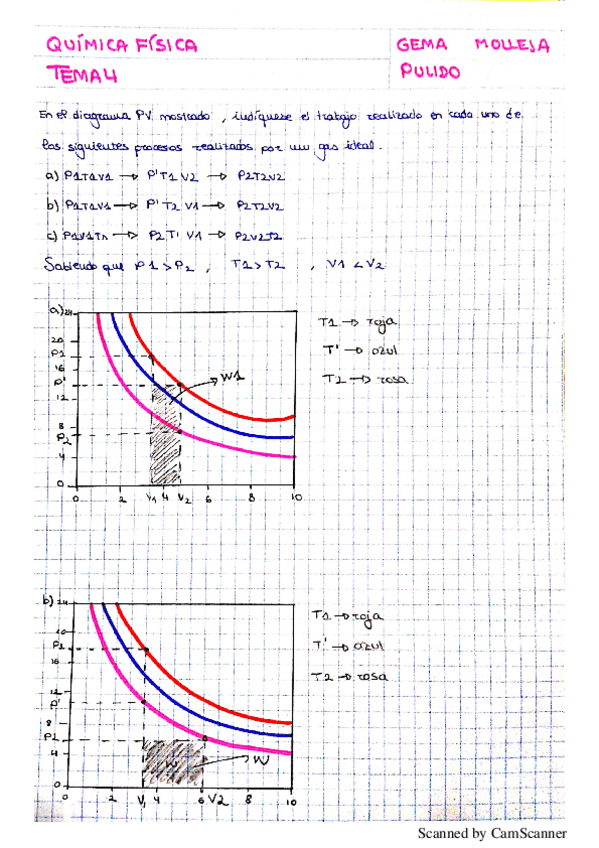 QUÍMICA FÍSICA
GEMA MOLLEJA
TEMA 4
PULIDO
En el diagrama PV mostrado, indíquese el trabajo realizado en cada uno de
los siguientes procesos realizados por un gas ideal.
a) P1T1V1 → P'T1V2 → P2T2V2
b) P1T1V1 → P'T2V1 → P2T2V2
c) P1V1T1 → P2T'V1 → P2V2T2
Sabiendo que P1 > P2, T1 > T2, V1 < V2
a) 24
20
P1
16
P'
12
8
P2
4
0
0 2 V1 4 V2 6 8 10
W1
T1 → roja
T' → azul
T2 → rosa
b) 24
20
P1
16
12
P'
8
P2
4
0
0 2 V1 4 6 V2 8 10
W
W
T1 → roja
T' → azul
T2 → rosa
Scanned by CamScanner